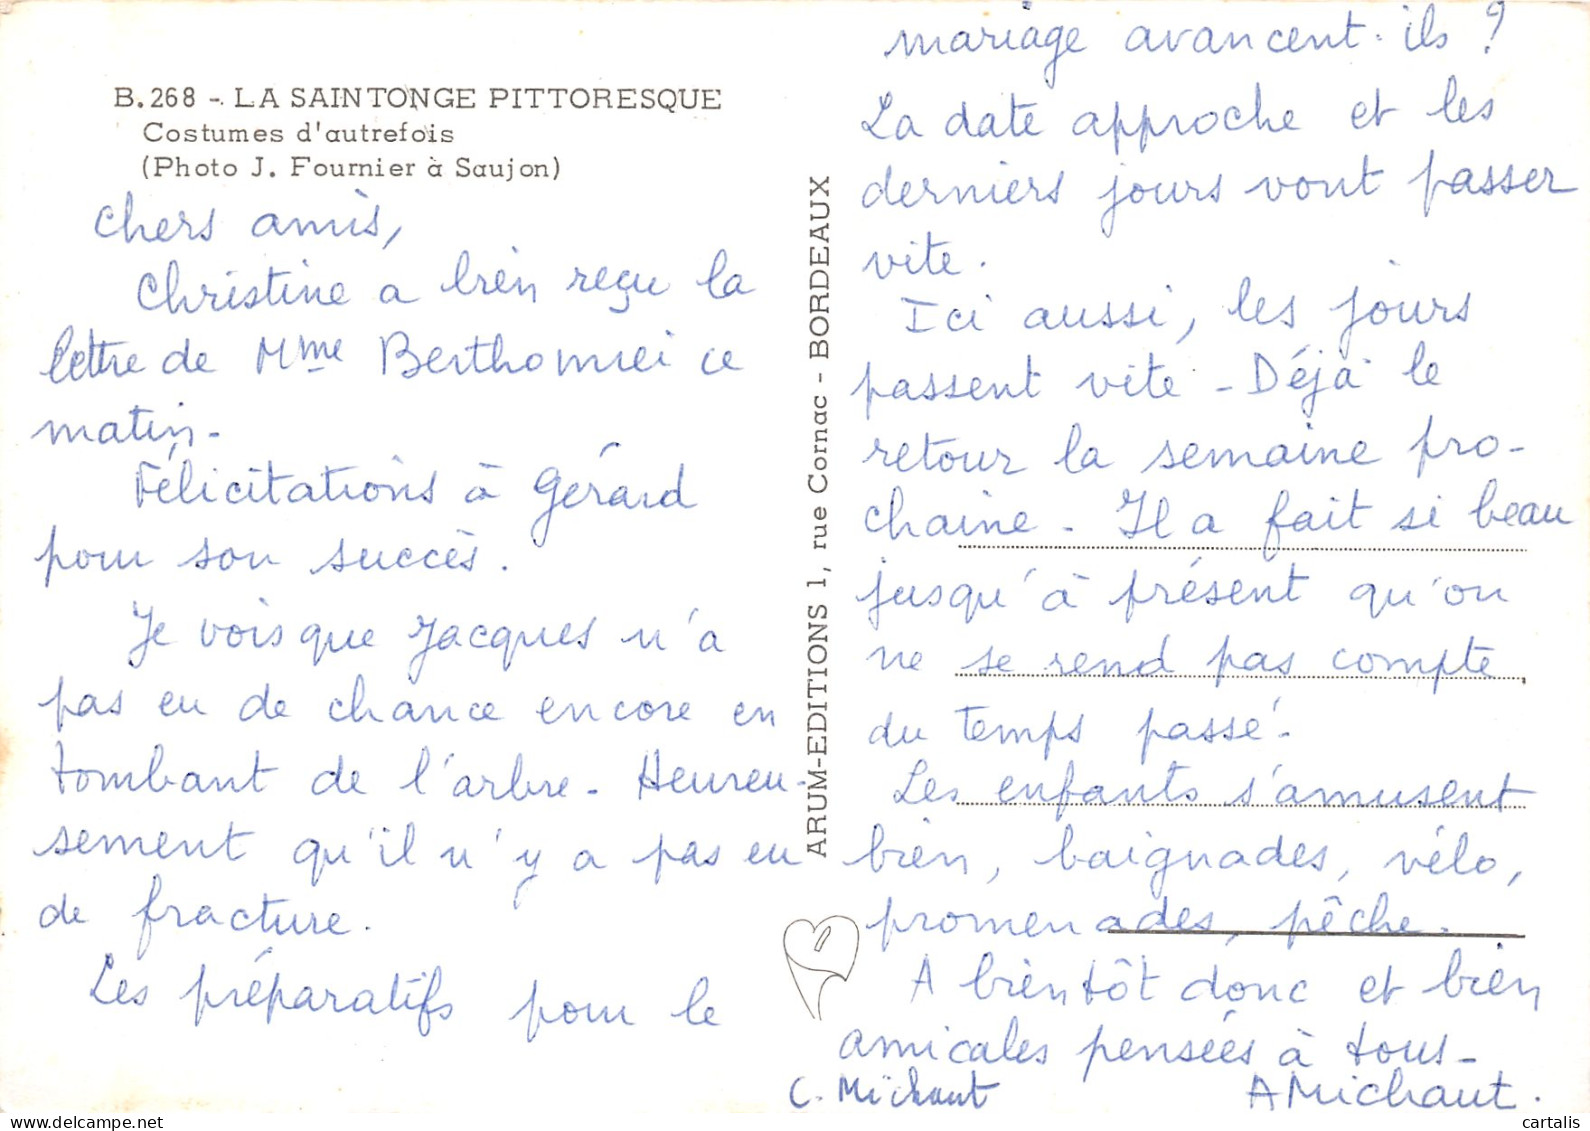 B.268 - LA SAINTONGE PITTORESQUE
Costumes d'autrefois
(Photo J. Fournier à Saujon)
Chers amis,
Christine a bien reçu la
lettre de Mme Berthomiei ce
matin-
Félicitations à Gérard
pour son succès.
Je vois que Jacques n'a
pas eu de chance encore en
tombant de l'arbre. Heureu-
sement qu'il n'y a pas eu
de fracture.
Les préparatifs pour le
ARUM-EDITIONS 1, rue Cornac - BORDEAUX
mariage avancent-ils ?
La date approche et les
derniers jours vont passer
vite.
Ici aussi, les jours
passent vite - Déjà le
retour la semaine pro-
chaine - Il a fait si beau
jusqu'à présent qu'on
ne se rend pas compte
du temps passé.
Les enfants s'amusent
bien, baignades, vélo,
promenades, pêche.
A bientôt donc et bien
amicales pensées à tous-
C. Michaut AMichaut.
cartalis.com